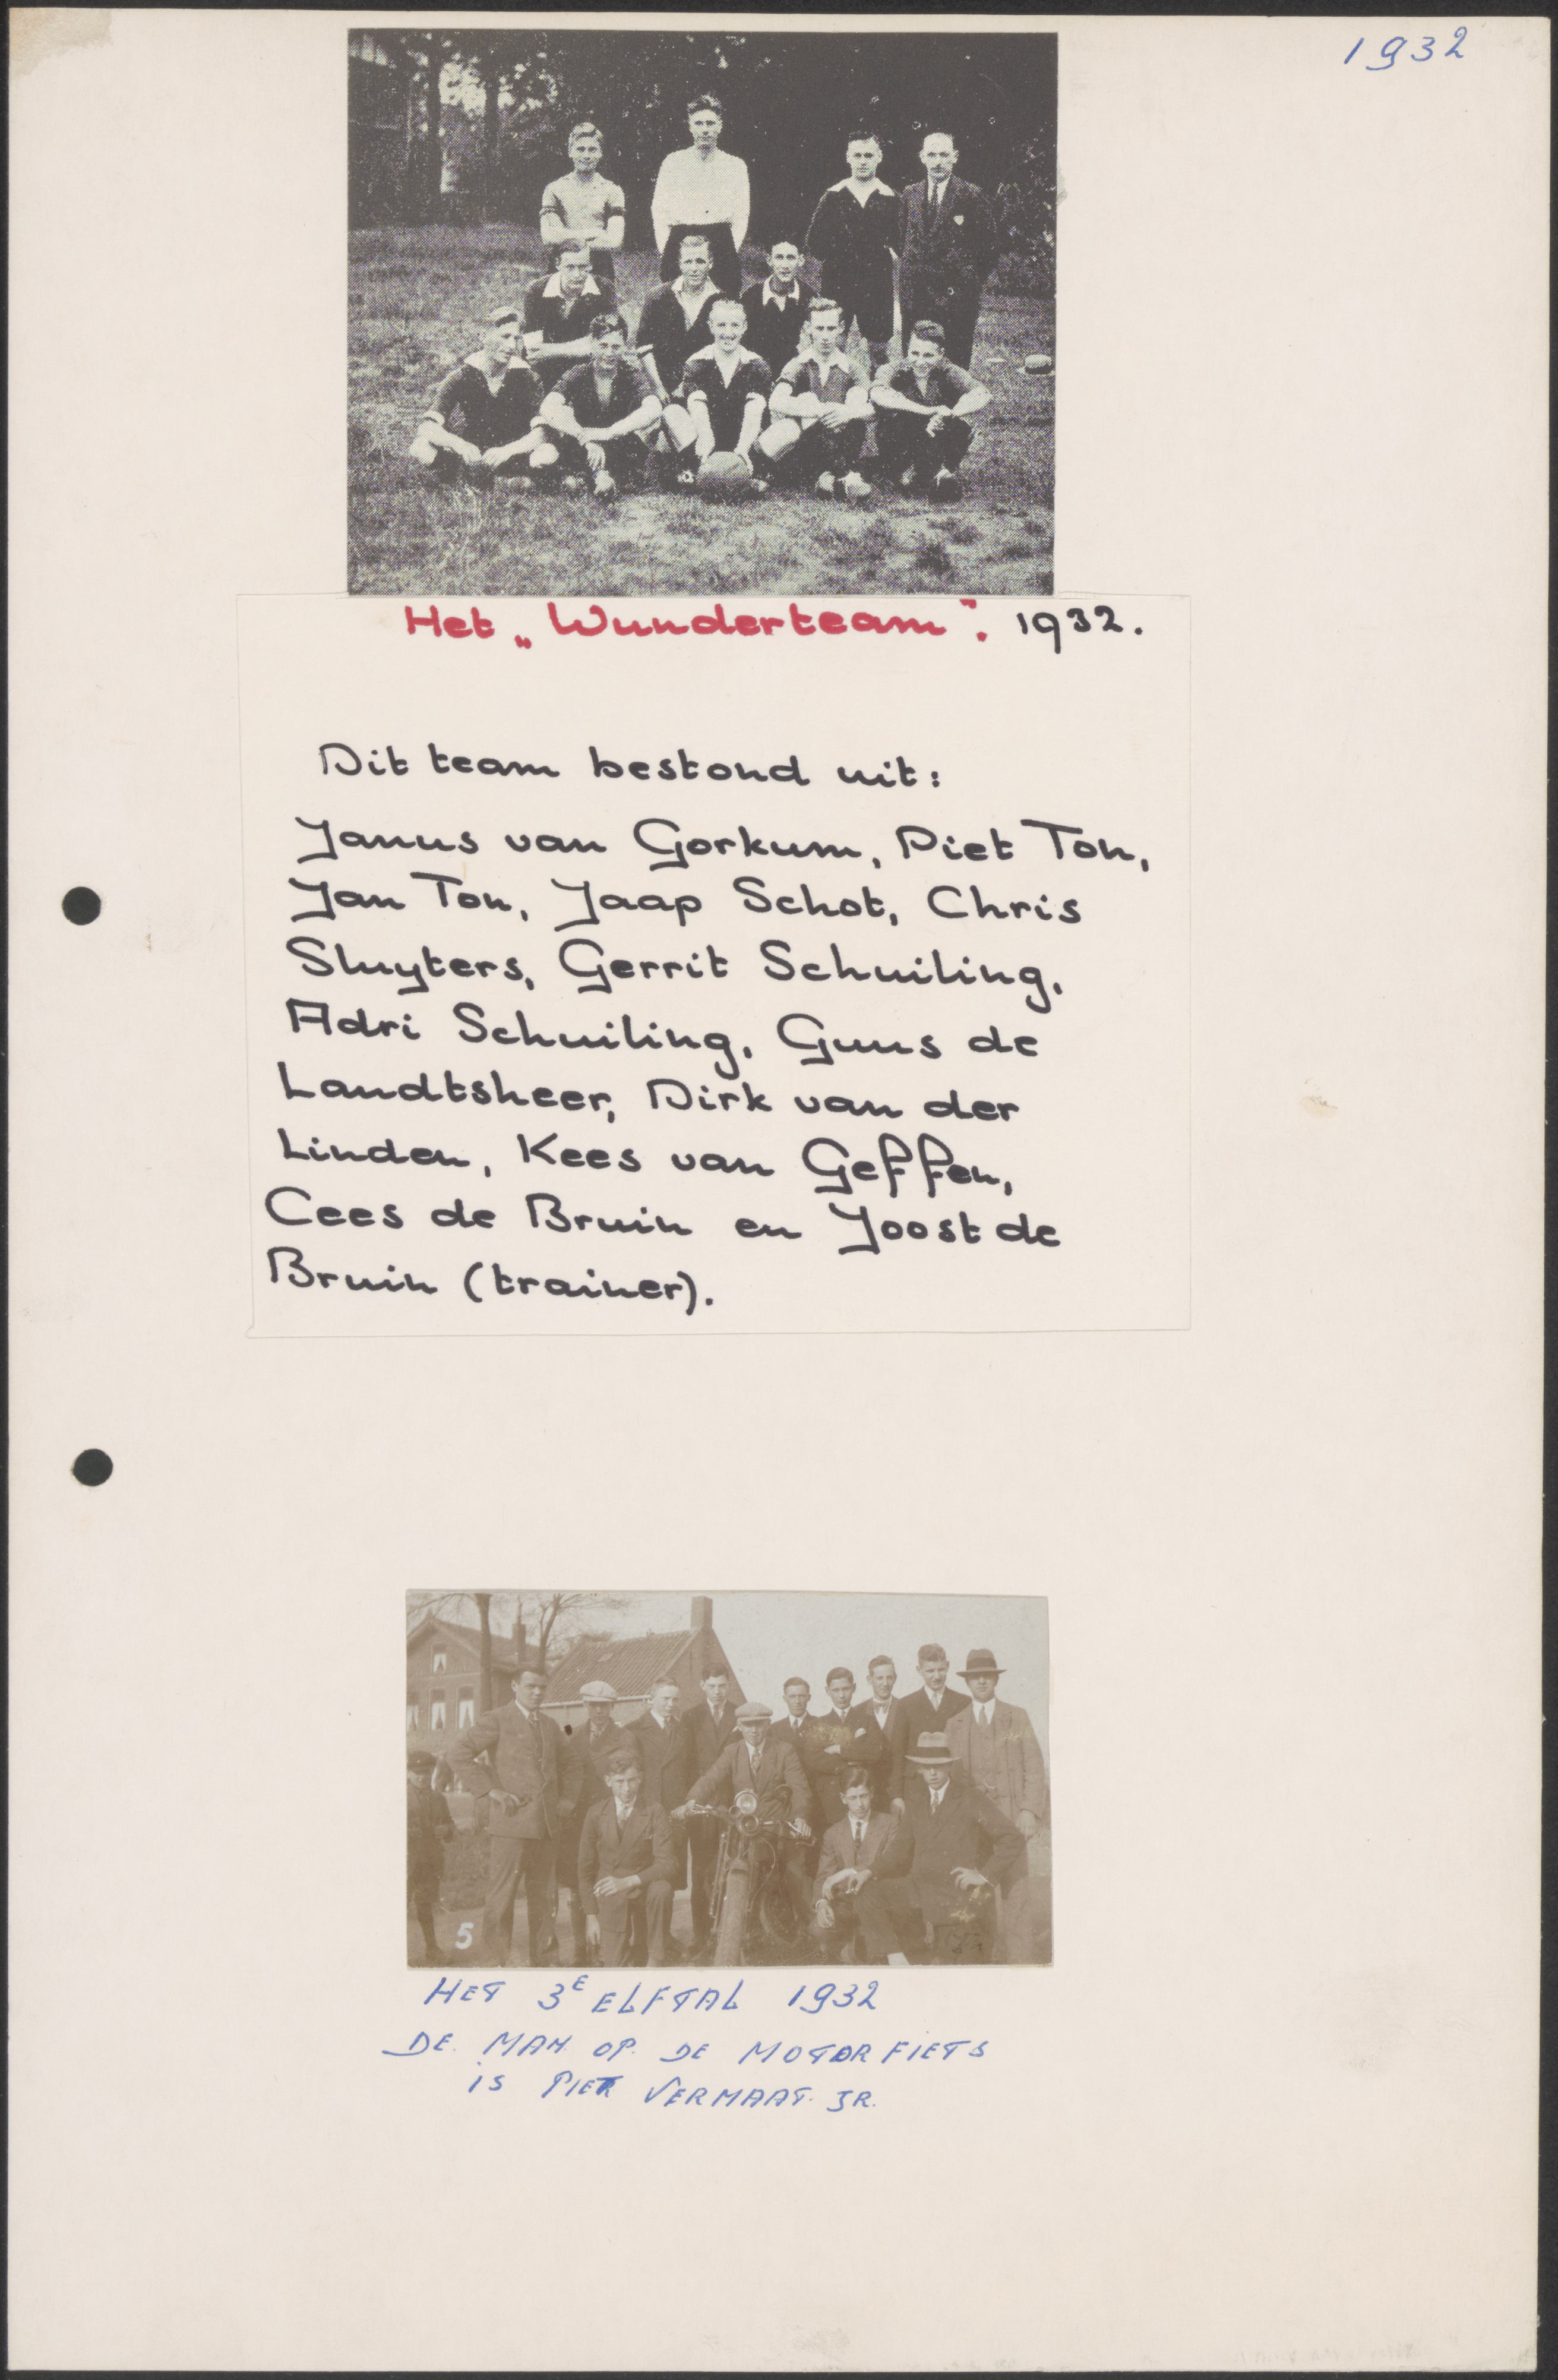 1932
Het „Wunderteam". 1932.
Dit team bestond uit:
Janus van Gorkum, Piet Ton,
Jan Ton, Jaap Schot, Chris
Sluyters, Gerrit Schuiling,
Adri Schuiling, Guus de
Landtsheer, Dirk van der
Linden, Kees van Geffen,
Cees de Bruin en Joost de
Bruin (trainer).
5
HET 3E ELFTAL 1932
DE. MAN. OP. DE MOTOR FIETS
is PIET VERMAAT. JR.